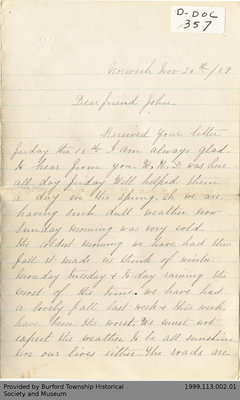 D-DOC
357
Norwich Nov 20th/89
Dear friend John
Received your letter
friday the 15th I am always glad
to hear from you W. H. D was here
all day friday Will helped them
a day in the spring. oh we are
having such dull weather now
Sunday morning was very cold.
the coldest morning we have had this
fall it made us think of winter
Monday tuesday & to day raining the
most of the time. we have had
a lovely fall last week & this week
have been the worst. We must not
expect the weather to be all sunshine
nor our lives either the roads are
Provided by Burford Township Historical
Society and Museum
1999.113.002.01